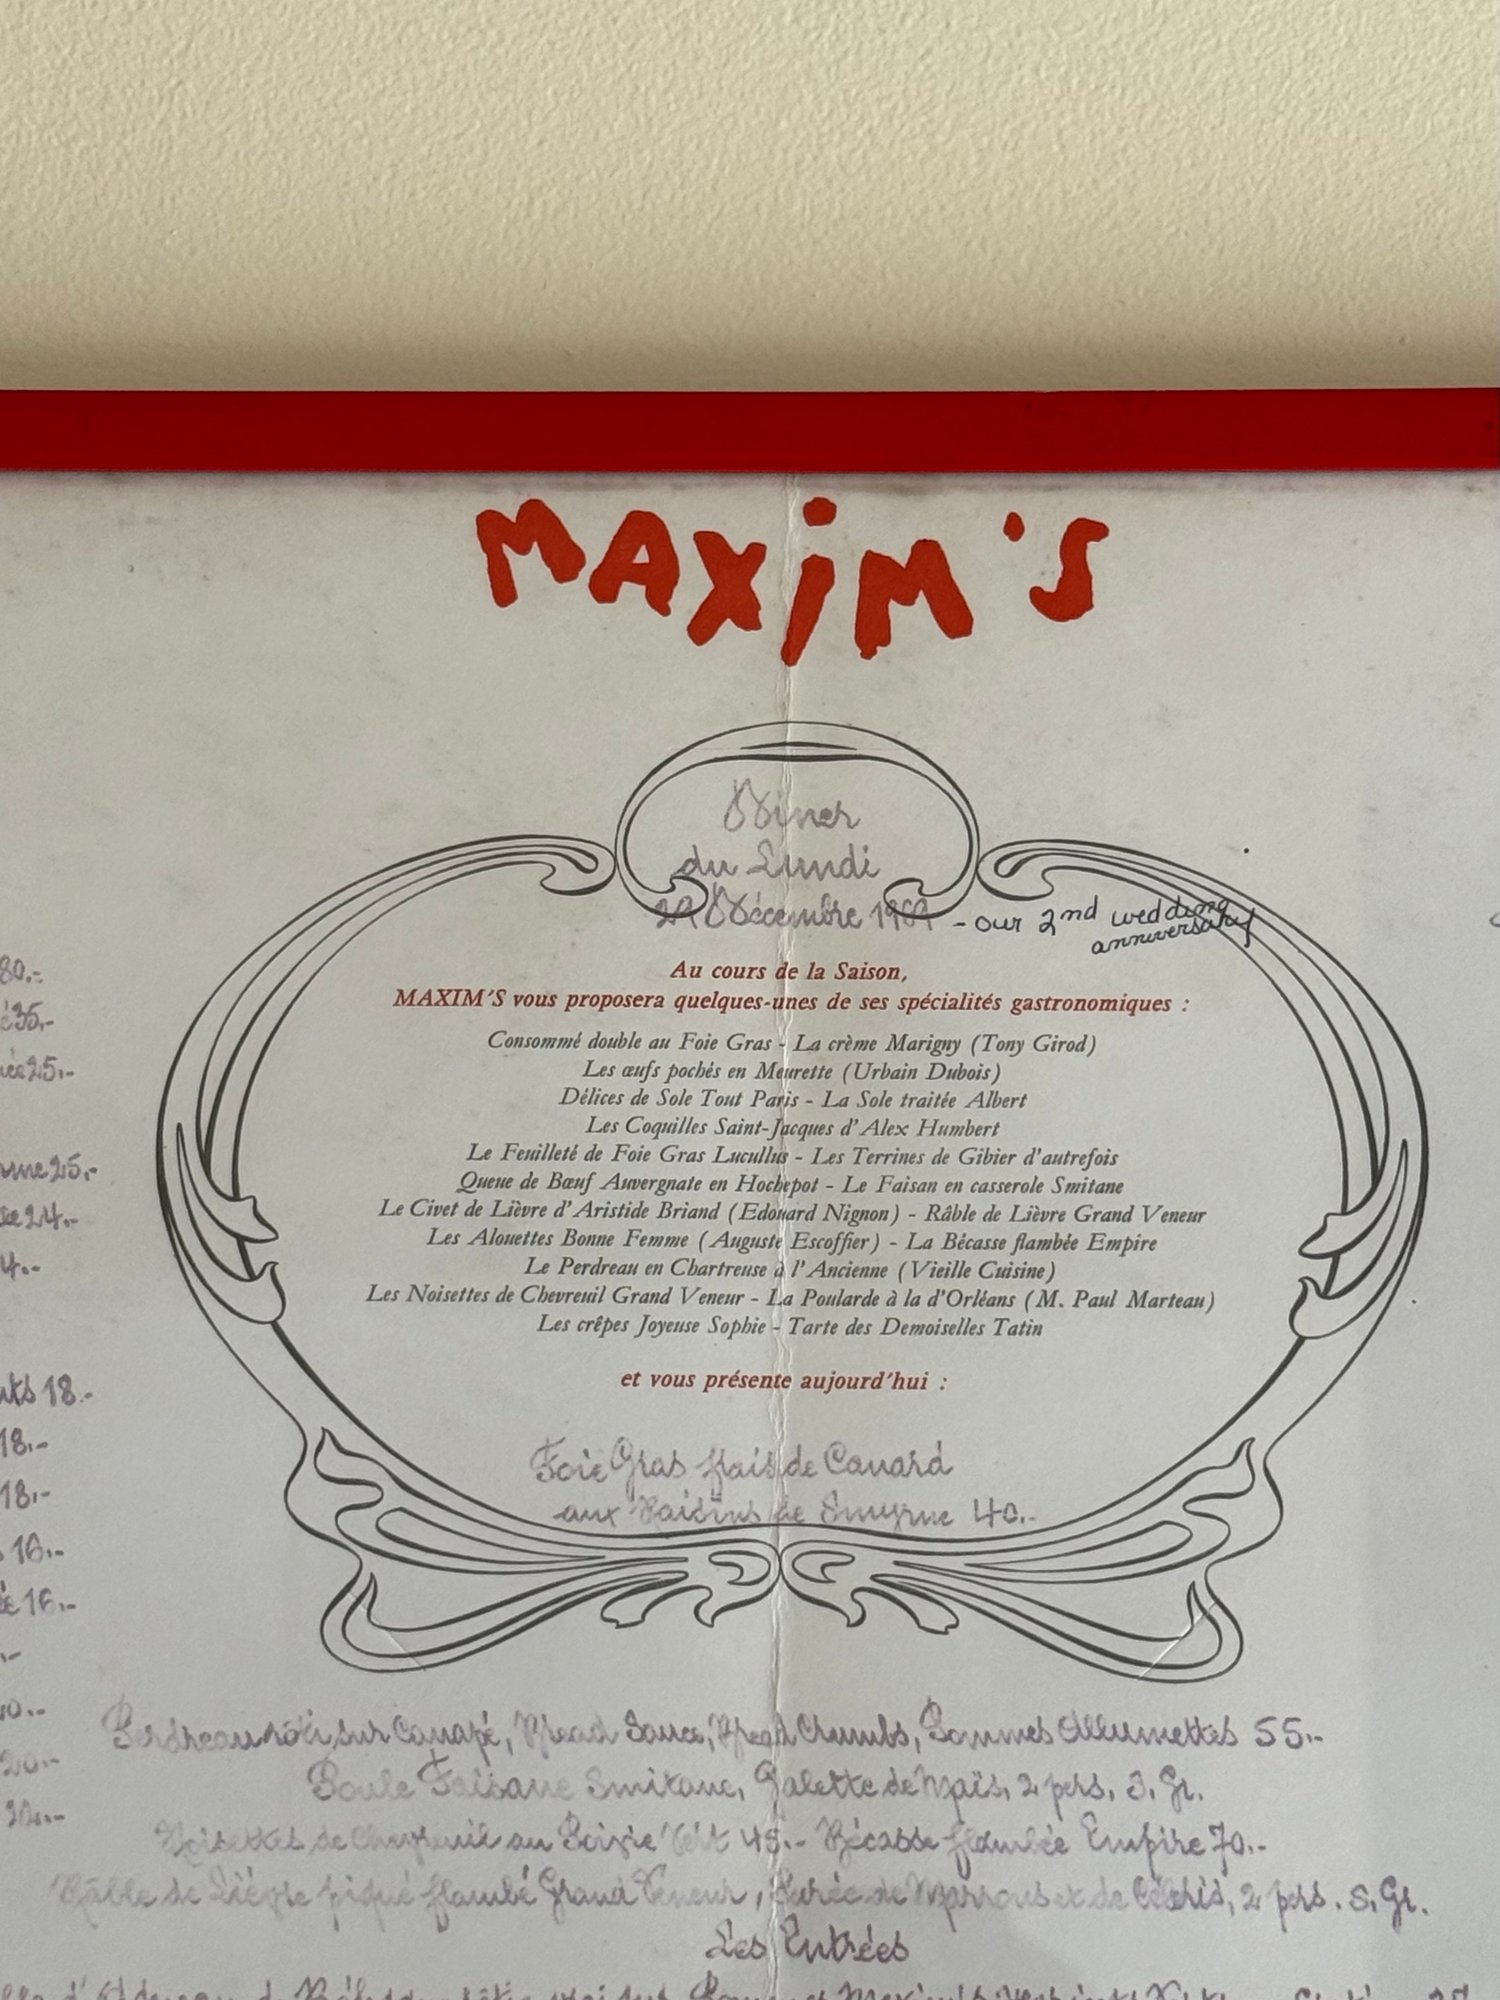 MAXIM'S
Diner
du Lundi
29 Décembre 1969 - our 2nd wedding
anniversary
Au cours de la Saison,
MAXIM'S vous proposera quelques-unes de ses spécialités gastronomiques :
Consommé double au Foie Gras - La crème Marigny (Tony Girod)
Les œufs pochés en Meurette (Urbain Dubois)
Délices de Sole Tout Paris - La Sole traitée Albert
Les Coquilles Saint-Jacques d'Alex Humbert
Le Feuilleté de Foie Gras Lucullus - Les Terrines de Gibier d'autrefois
Queue de Bœuf Auvergnate en Hochepot - Le Faisan en casserole Smitane
Le Civet de Lièvre d'Aristide Briand (Edouard Nignon) - Râble de Lièvre Grand Veneur
Les Alouettes Bonne Femme (Auguste Escoffier) - La Bécasse flambée Empire
Le Perdreau en Chartreuse à l'Ancienne (Vieille Cuisine)
Les Noisettes de Chevreuil Grand Veneur - La Poularde à la d'Orléans (M. Paul Marteau)
Les crêpes Joyeuse Sophie - Tarte des Demoiselles Tatin
et vous présente aujourd'hui :
Foie Gras frais de Canard
aux Raisins de Smyrne 40.-
80.-
35.-
25.-
25.-
24.-
4.-
18.-
18.-
18.-
16.-
16.-
20.-
Perdreau rôti sur Canapé, Bread Sauce, Bread Crumbs, Pommes Allumettes 55.-
Poule Faisane Smitane, Galette de Maïs, 2 pers. S. Gr.
Noisettes de Chevreuil au Poivre Vert 45.- Bécasse flambée Empire 70.-
Râble de Lièvre piqué flambé Grand Veneur, Purée de Marrons et de Céleris, 2 pers. S. Gr.
Les Entrées